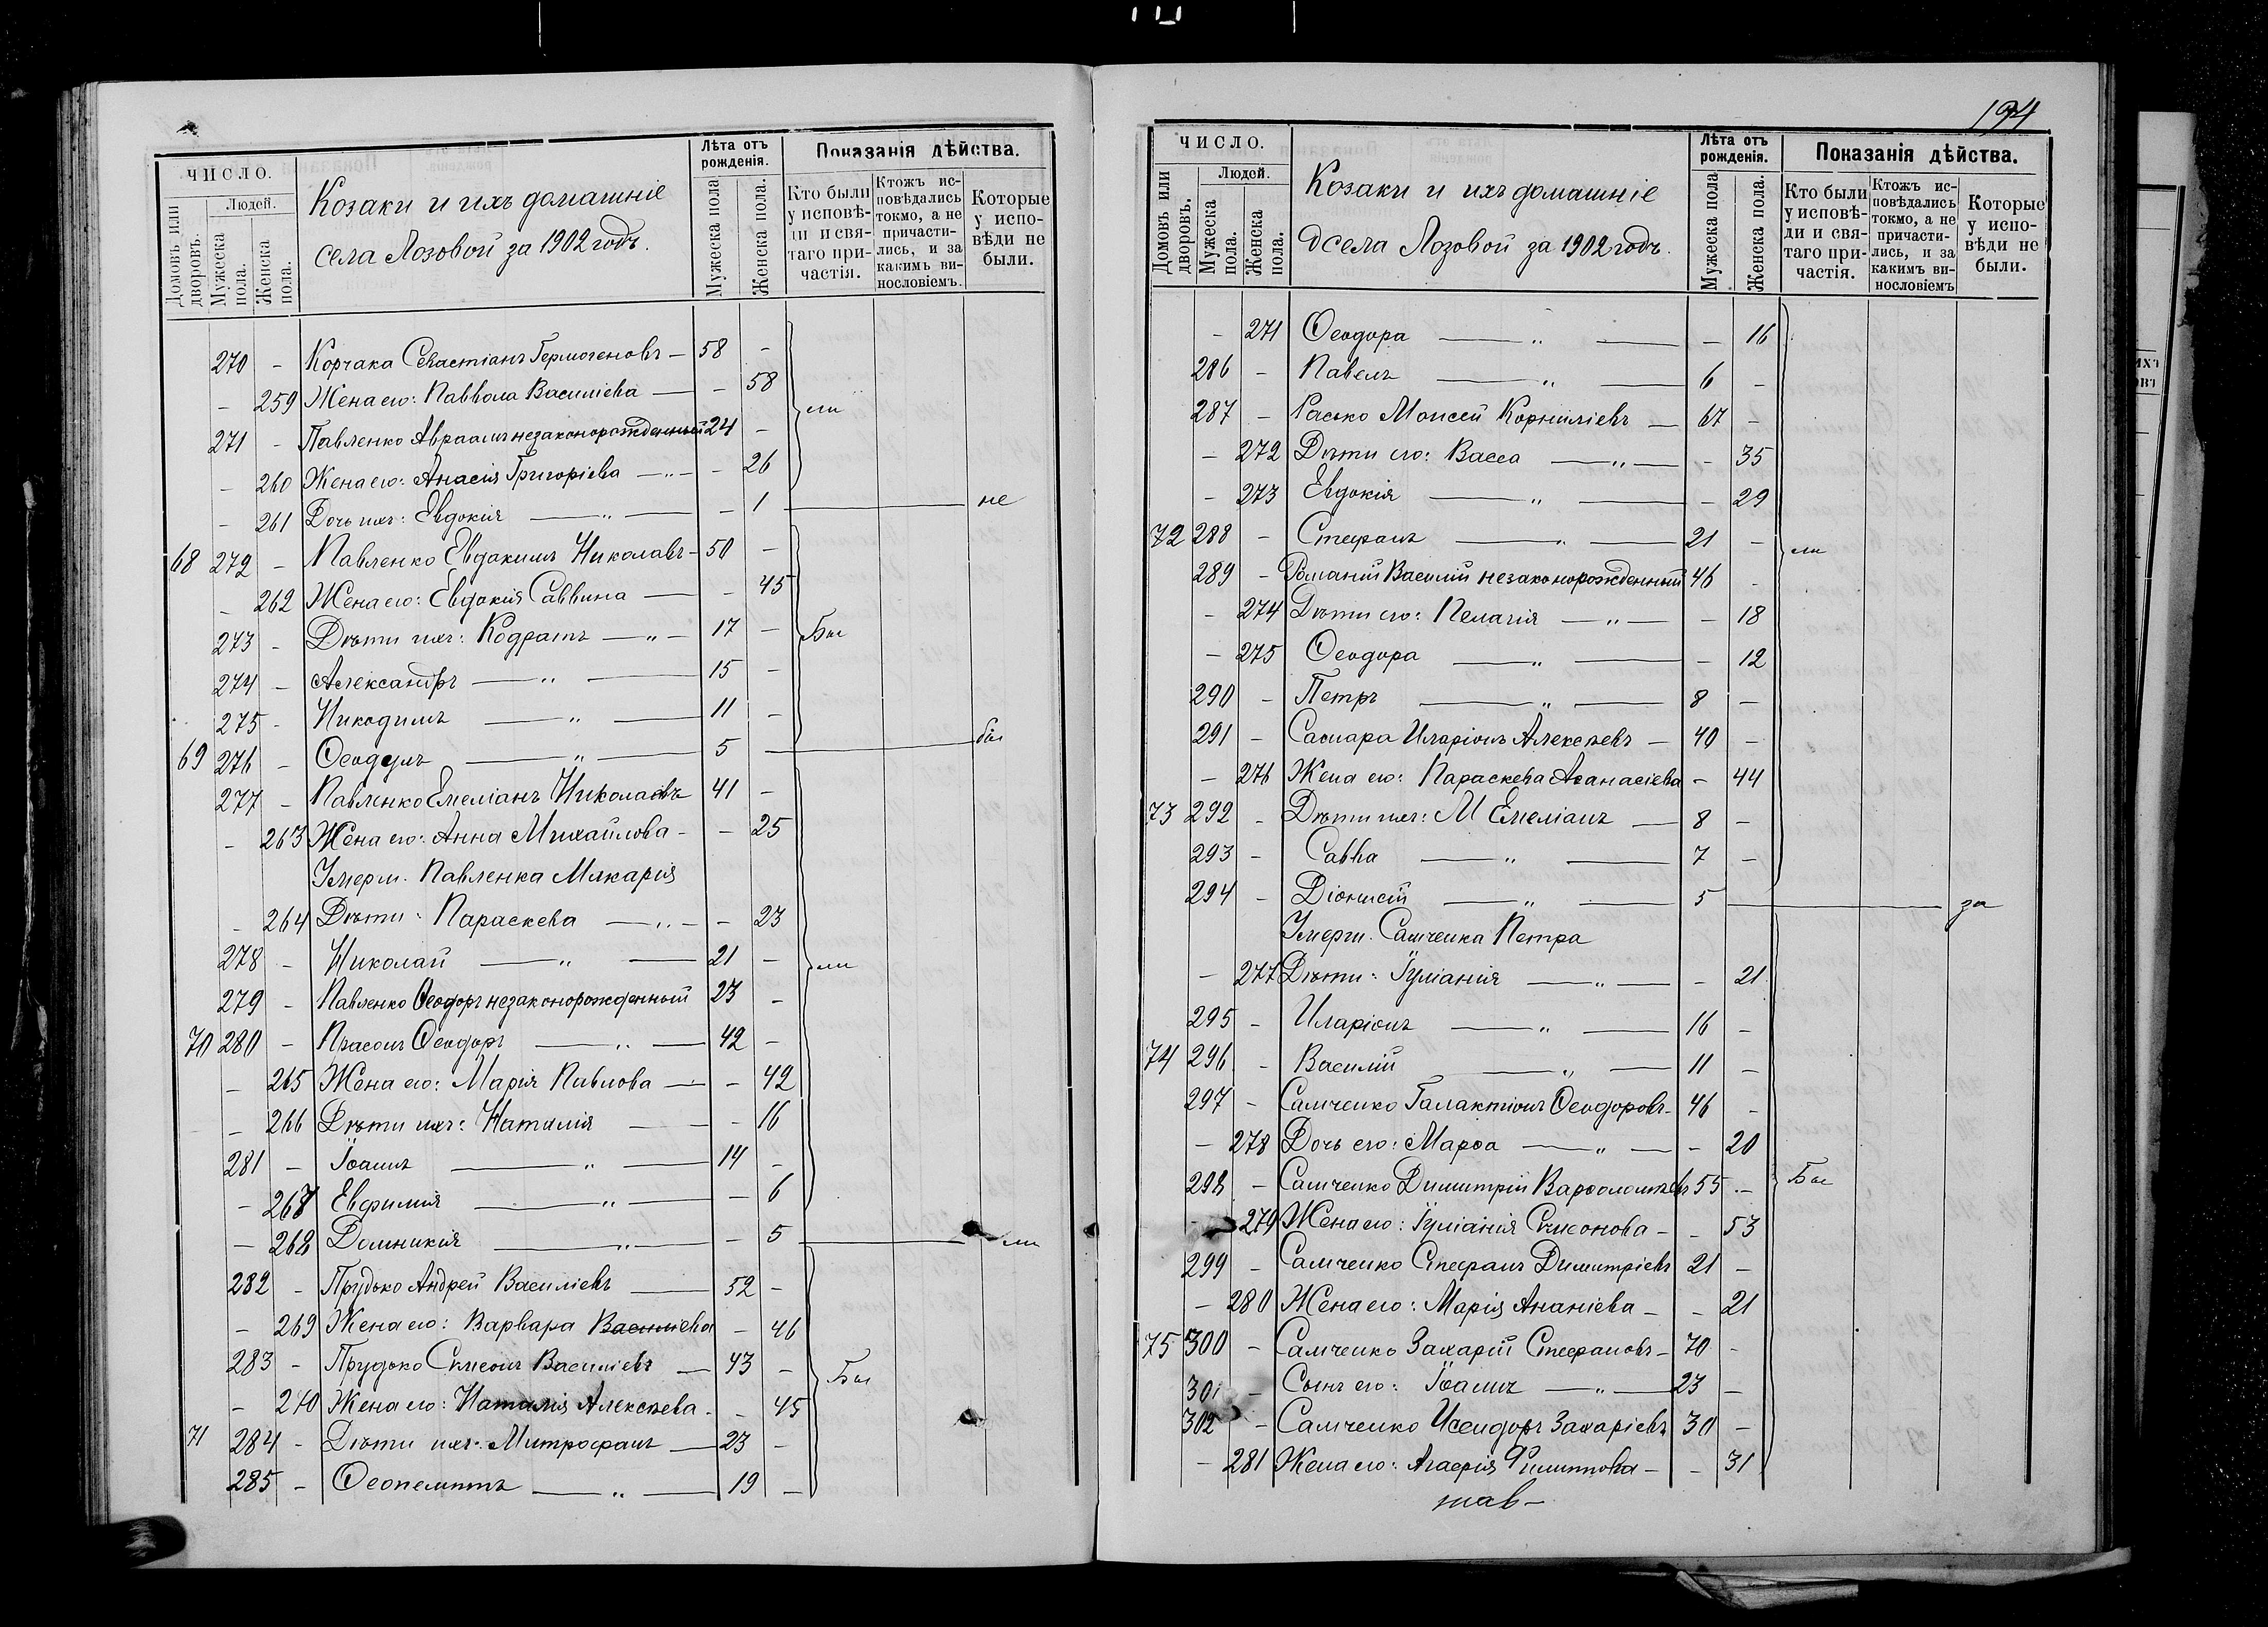 ЧИСЛО.
Домовъ или дворовъ.
Людей.
Мужеска пола.
Женска пола.
Козаки и ихъ домашніе
села Лозовой за 1902 годъ.
Лѣта отъ рожденія.
Мужеска пола
Женска пола.
Показанія дѣйства.
Кто были у исповѣди и святаго причастія.
Ктожъ исповѣдались токмо, а не причастились, и за какимъ винословіемъ.
Которые у исповѣди не были.
270 - Корчака Севастіанъ Гермогеновъ — 58 -
- 259 Жена его: Паввола Василіева — - 58
ли
271 - Павленко Авраамъ незаконорожденный 24 -
- 260 Жена его: Анасія Григоріева —„— - 26
- 261 Дочь ихъ: Евдокія —„— - 1 — не
68 272 - Павленко Евдокимъ Николавъ - 50 -
- 262 Жена его: Евдокія Саввина — - 45
273 - Дѣти ихъ: Кодратъ —„— 17 - Бы
274 - Александръ —„— 15 -
275 - Никодимъ —„— 11 -
69 276 - Ѳеодулъ —„— 5 — бы
277 - Павленко Емеліанъ Николаевъ 41 -
- 263 Жена его: Анна Михайлова - - 25
Умерш. Павленка Макарія
- 264 Дѣти: Параскева —„— - 23
278 - Николай —„— 21 - ли
279 - Павленко Ѳеодоръ незаконорожденный 23 -
70 280 - Ѳеодоръ —„— 42 -
- 265 Жена его: Марія Павлова — - 42
- 266 Дѣти ихъ: Наталія — - 16
281 - Іоаннъ —„— 14 -
- 267 Евфимія —„— - 6
- 268 Домникія —„— - 5 — ли
282 - Прудько Андрей Василіевъ — 52 -
- 269 Жена его: Варвара Василіева - 46
283 - Прудько Симеонъ Василіевъ — 43 - Бы
- 270 Жена его: Наталія Алексѣева - - 45
71 284 - Дѣти ихъ: Митрофанъ — 23 -
285 - Ѳеопемптъ —„— 19 -
194
ЧИСЛО.
Домовъ или дворовъ.
Людей.
Мужеска пола.
Женска пола.
Козаки и ихъ домашніе
села Лозовой за 1902 годъ.
Лѣта отъ рожденія.
Мужеска пола
Женска пола.
Показанія дѣйства.
Кто были у исповѣди и святаго причастія.
Ктожъ исповѣдались токмо, а не причастились, и за какимъ винословіемъ
Которые у исповѣди не были.
- 271 Ѳеодора —„— - 16
286 - Павелъ —„— 6 -
287 - Расько Моисей Корниліевъ — 67 -
- 272 Дѣти его: Васса —„— - 35
- 273 Евдокія —„— - 29
72 288 - Стефанъ —„— 21 - ли
289 - Романій Василій незаконорожденный 46 -
- 274 Дѣти его: Пелагія —„— - 18
- 275 Ѳеодора —„— - 12
290 - Петръ —„— 8 -
291 - Иларіонъ Алексѣевъ — 40 -
- 276 Жена его: Параскева Аѳанасіева - 44
73 292 - Дѣти ихъ: М Емеліанъ — 8 -
293 - Савва —„— 7 -
294 - Діонисій —„— 5 — за
Умерш. Самченка Петра
- 277 Дѣти: Іуліанія —„— - 21
295 - Иларіонъ —„— 16 -
74 296 - Василій —„— 11 -
297 - Самченко Галактіонъ Ѳеодоровъ - 46 -
- 278 Дочь его: Марѳа —„— - 20
298 - Самченко Димитрій Варѳоломѣевъ 55 - Бы
- 279 Жена его: Іуліанія Симонова - - 53
299 - Самченко Стефанъ Димитріевъ 21 -
- 280 Жена его: Марія Ананіева - - 21
75 300 - Самченко Захарій Стефановъ - 70 -
301 - Сынъ его: Іоаннъ —„— 23 -
302 - Самченко Исидоръ Захаріевъ 30 -
- 281 Жена его: Агафія Филиппова - - 31
тав-